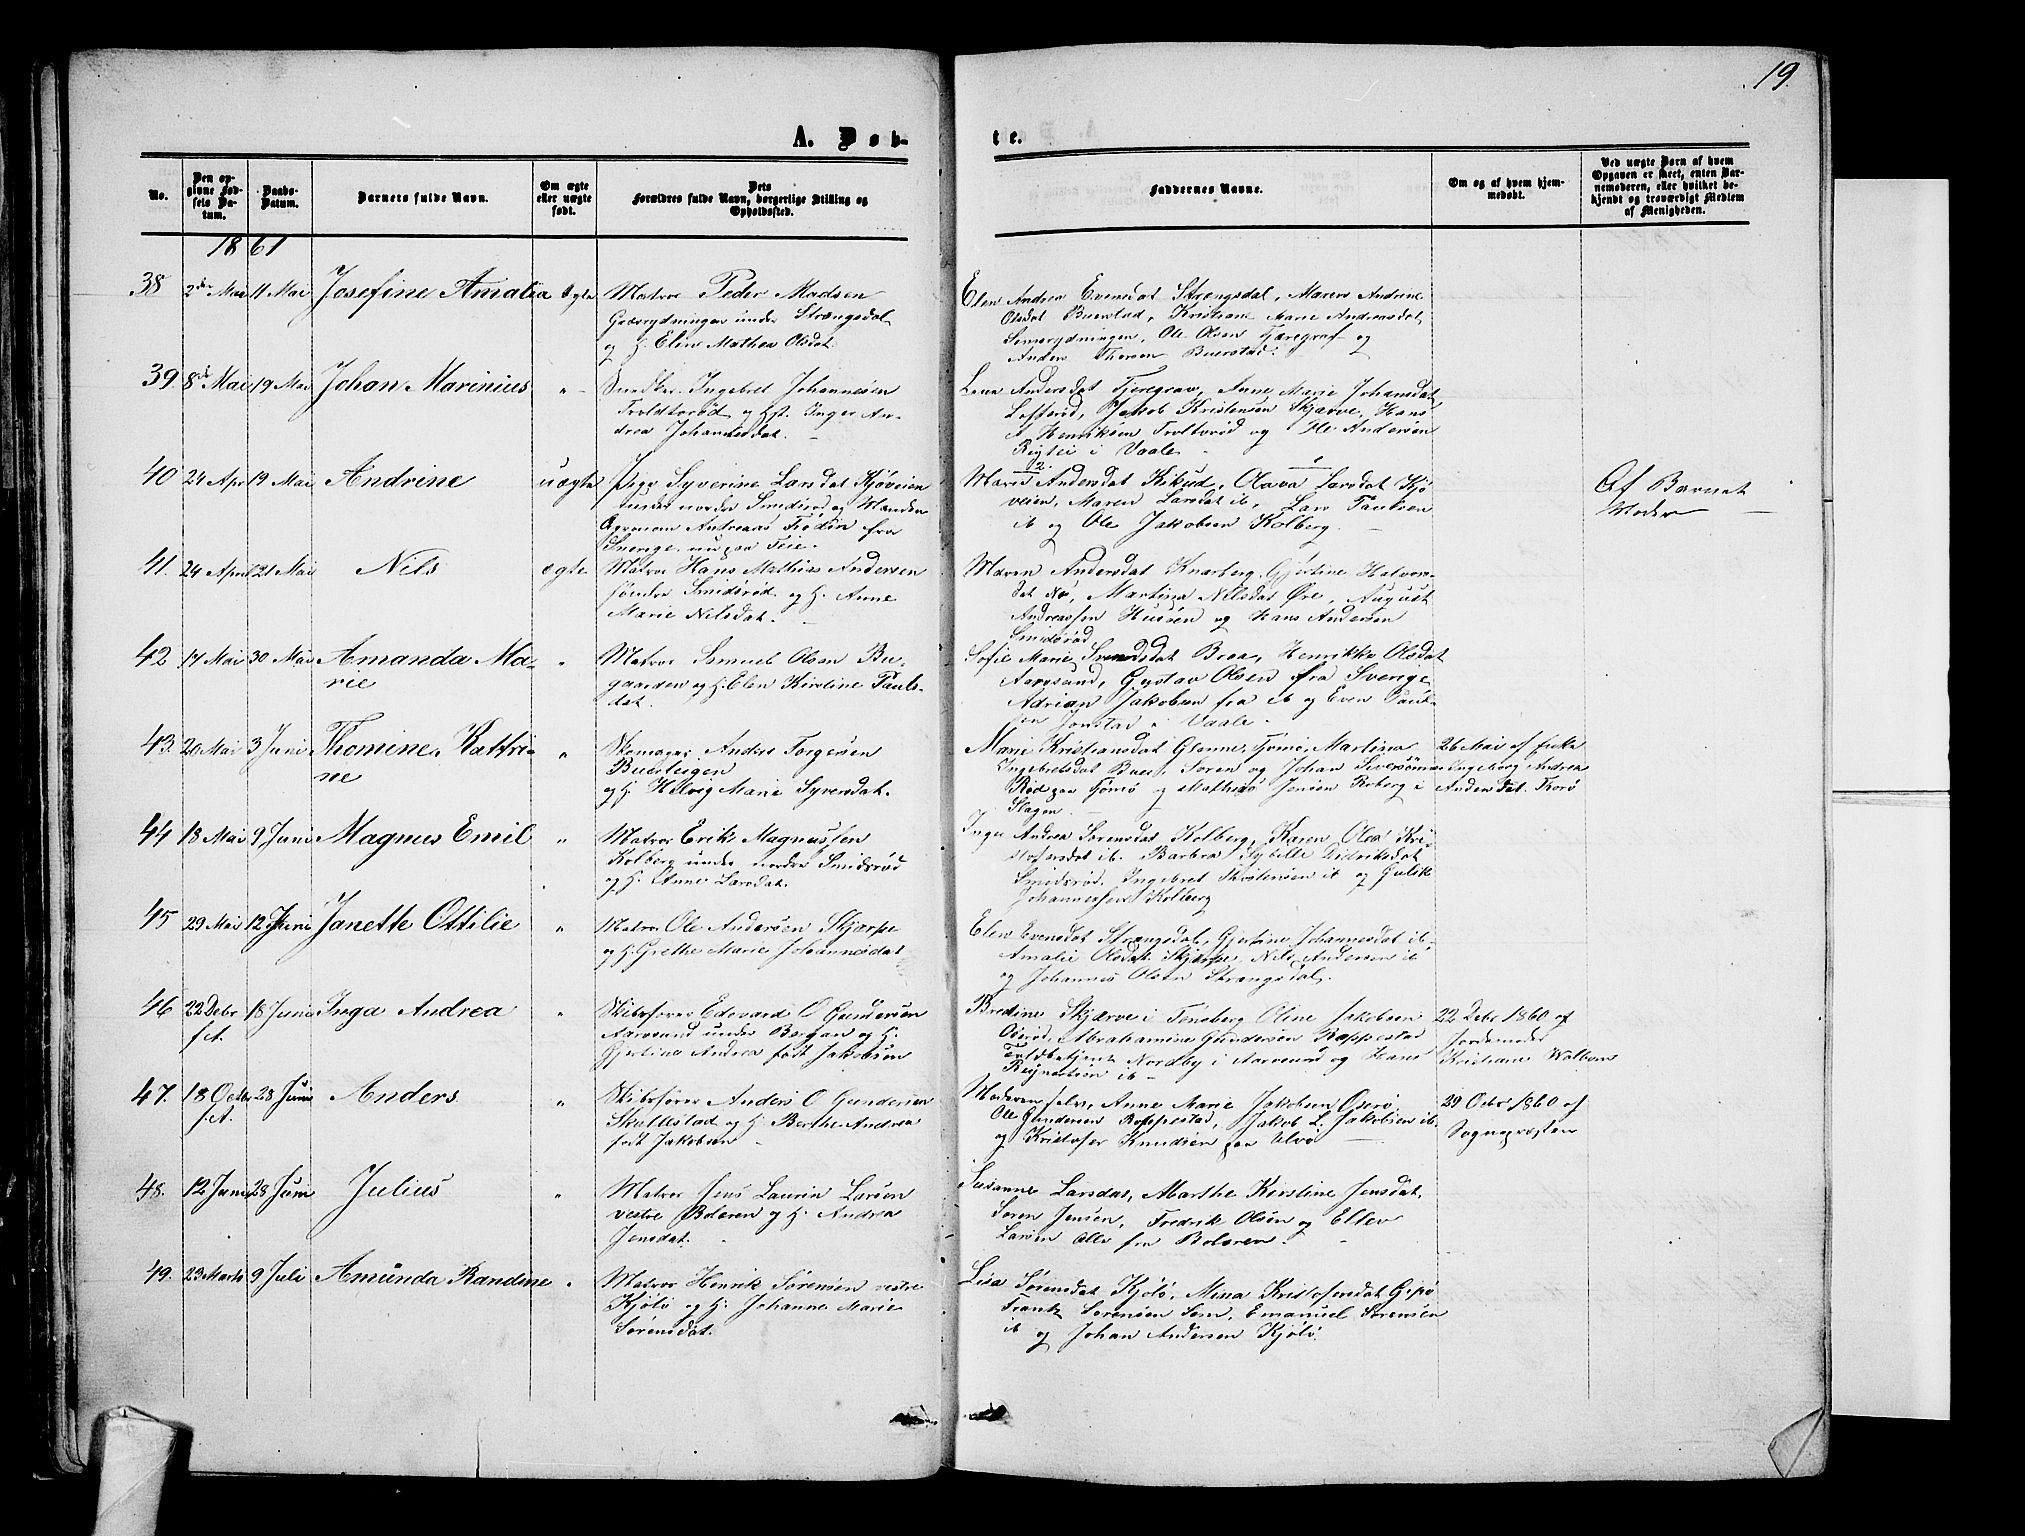 19.
A. Døb-
te.
No.
Den opgivne Fødsels Datum.
Daabs-Datum.
Barnets fulde Navn.
Om ægte eller uægte født.
Dets Forældres fulde Navn, borgerlige Stilling og Opholdssted.
Faddernes Navne.
Om og af hvem hjemmedøbt.
Ved uægte Børn af hvem Opgaven er skeet, enten Barnemoderen, eller hvilket bekjendt og troværdigt Medlem af Menigheden.
1861
38 2den Mai 11 Mai Josefine Amalia Ægte Matros Peder Madsen
under Strængsdal
og H. Elen Mathea Olsdat.
Elen Andrea Evensdat Strængsdal, Maren Andrine
Olsdat Buerstad, Kristiane Marie Andreasdat,
Ole Olsen Fjæregraf og
Anders Thorsen Buerstad.
39. 8de Mai 19 Mai Johan Marinius " Snedker Ingebret Johannesen
og Hst. Inger An-
drea Johannesdat.
Lena Andersdat Fjeregrav, Anne Marie Johansdat
Jakob Kristensen Skjærve, Hans
Henriksen og Ole Andersen
i Vaale.
40 24 Apr 19 Mai Andrine uægte Pige Syverine Larsdat Kjøveien
under nordre Smidsrød og
Andreas fra
Sverige, nu paa Teie.
Maren Andersdat Olava Larsdat Kjø
veien, Maren Larsdat ib, Lars Paulsen
ib og Ole Jakobsen Kolberg.
Af Barnet
Moder
41. 24 April 21 Mai Nils ægte Matros Hans Mathias Andersen
søndre Smidsrød og H. Anne
Marie Nilsdat.
Maren Andersdat Knarberg, Gjertine Halvors-
dat Martina Nilsdat Øre, August
Andreassen og Hans Andersen
Smidsrød
42 17 Mai 30 Mai Amanda Ma-
rie " Matros Samuel Olsen Bu-
gaarden og H. Elen Kirstine Pauls-
dat.
Sofie Marie Svendsdat Henrikke Olsdat
Aarøsund, Gustav Olsen fra Sverige,
Adrian Jakobsen fra ib og Even Paul-
sen i Vaale.
43. 20 Mai 3 Juni Thomine Kathri-
ne " Skomager Anders Torgersen
og H. Helvig Marie Syversdat.
Marie Kristiansdat Glenne, Martina
Ingebretsdat Soren og Johan Siversønner
paa og Mathias Jensen i
Slagen.
26 Mai af
Ingeborg Andrea
44 18 Mai 9 Juni Magnus Emil " Matros Erik Magnussen
Kolberg under nordre Smidsrød
og H. Anne Larsdat.
Inger Andrea Sørensdat Kolberg, Karen Olea Kri-
stofersdat ib. Barbra Sybille Didriksdat
Smidsrød, Ingebret Kristensen ib og Gulik
Johannessen Kolberg
45 29 Mai 12 Juni Janette Ottilie " Matros Ole Andersen Skjærpe
og H. Grethe Marie Johannesdat
Elen Evensdat Strængsdal, Gjertine Johannesdat ib.
Amalie Olsdat Skjærpe, Nils Andersen ib
og Johannes Olsen Strængsdal.
46 22 Debr 18 Juni Inga Andrea
f.A. " Skibsfører Edevard O Gundersen
Aarøsund under Bergan og H.
Gjertine Andrea født Jakobsen
Bredine Skjærve i Tønsberg Oline Jakobsen
Abrahamine Gundersen Røppestad
Nordby i Aarøsund og Hans
22 Debr 1860 af
Jordemoder
Kristiane
47. 18 Octbr 28 Juni Anders
f.A. " Skibsfører Anders O Gundersen
Skallestad og H. Berthe Andrea
født Jakobsen
Moderen selv, Anne Marie Jakobsen
Ole Gundersen Røppestad, Jakob L. Jakobsen ib.
og Kristofer Knudsen paa Ulvø
29 Octbr 1860 af
Sognepræsten
48. 12 Juni 28 Juni Julius " Matros Jens Laurin Larsen
vestre Bolæren og H. Andrea
Jensdat.
Susanne Larsdat, Marthe Kirstine Jensdat,
Soren Jensen, Fredrik Olsen og Ellev
Larsen Alle fra Bolæren.
49. 23 Marts 9 Juli Amünda Randine " Matros Henrik Sørensen vestre
Kjøle og H. Johanne Marie
Sørensdat.
Lisa Sørensdat Kjølø, Mina Kristofersdat Gipø
Frantz Sørensen Sem, Emanuel Sørensen
ib og Johan Andersen Kjølø.